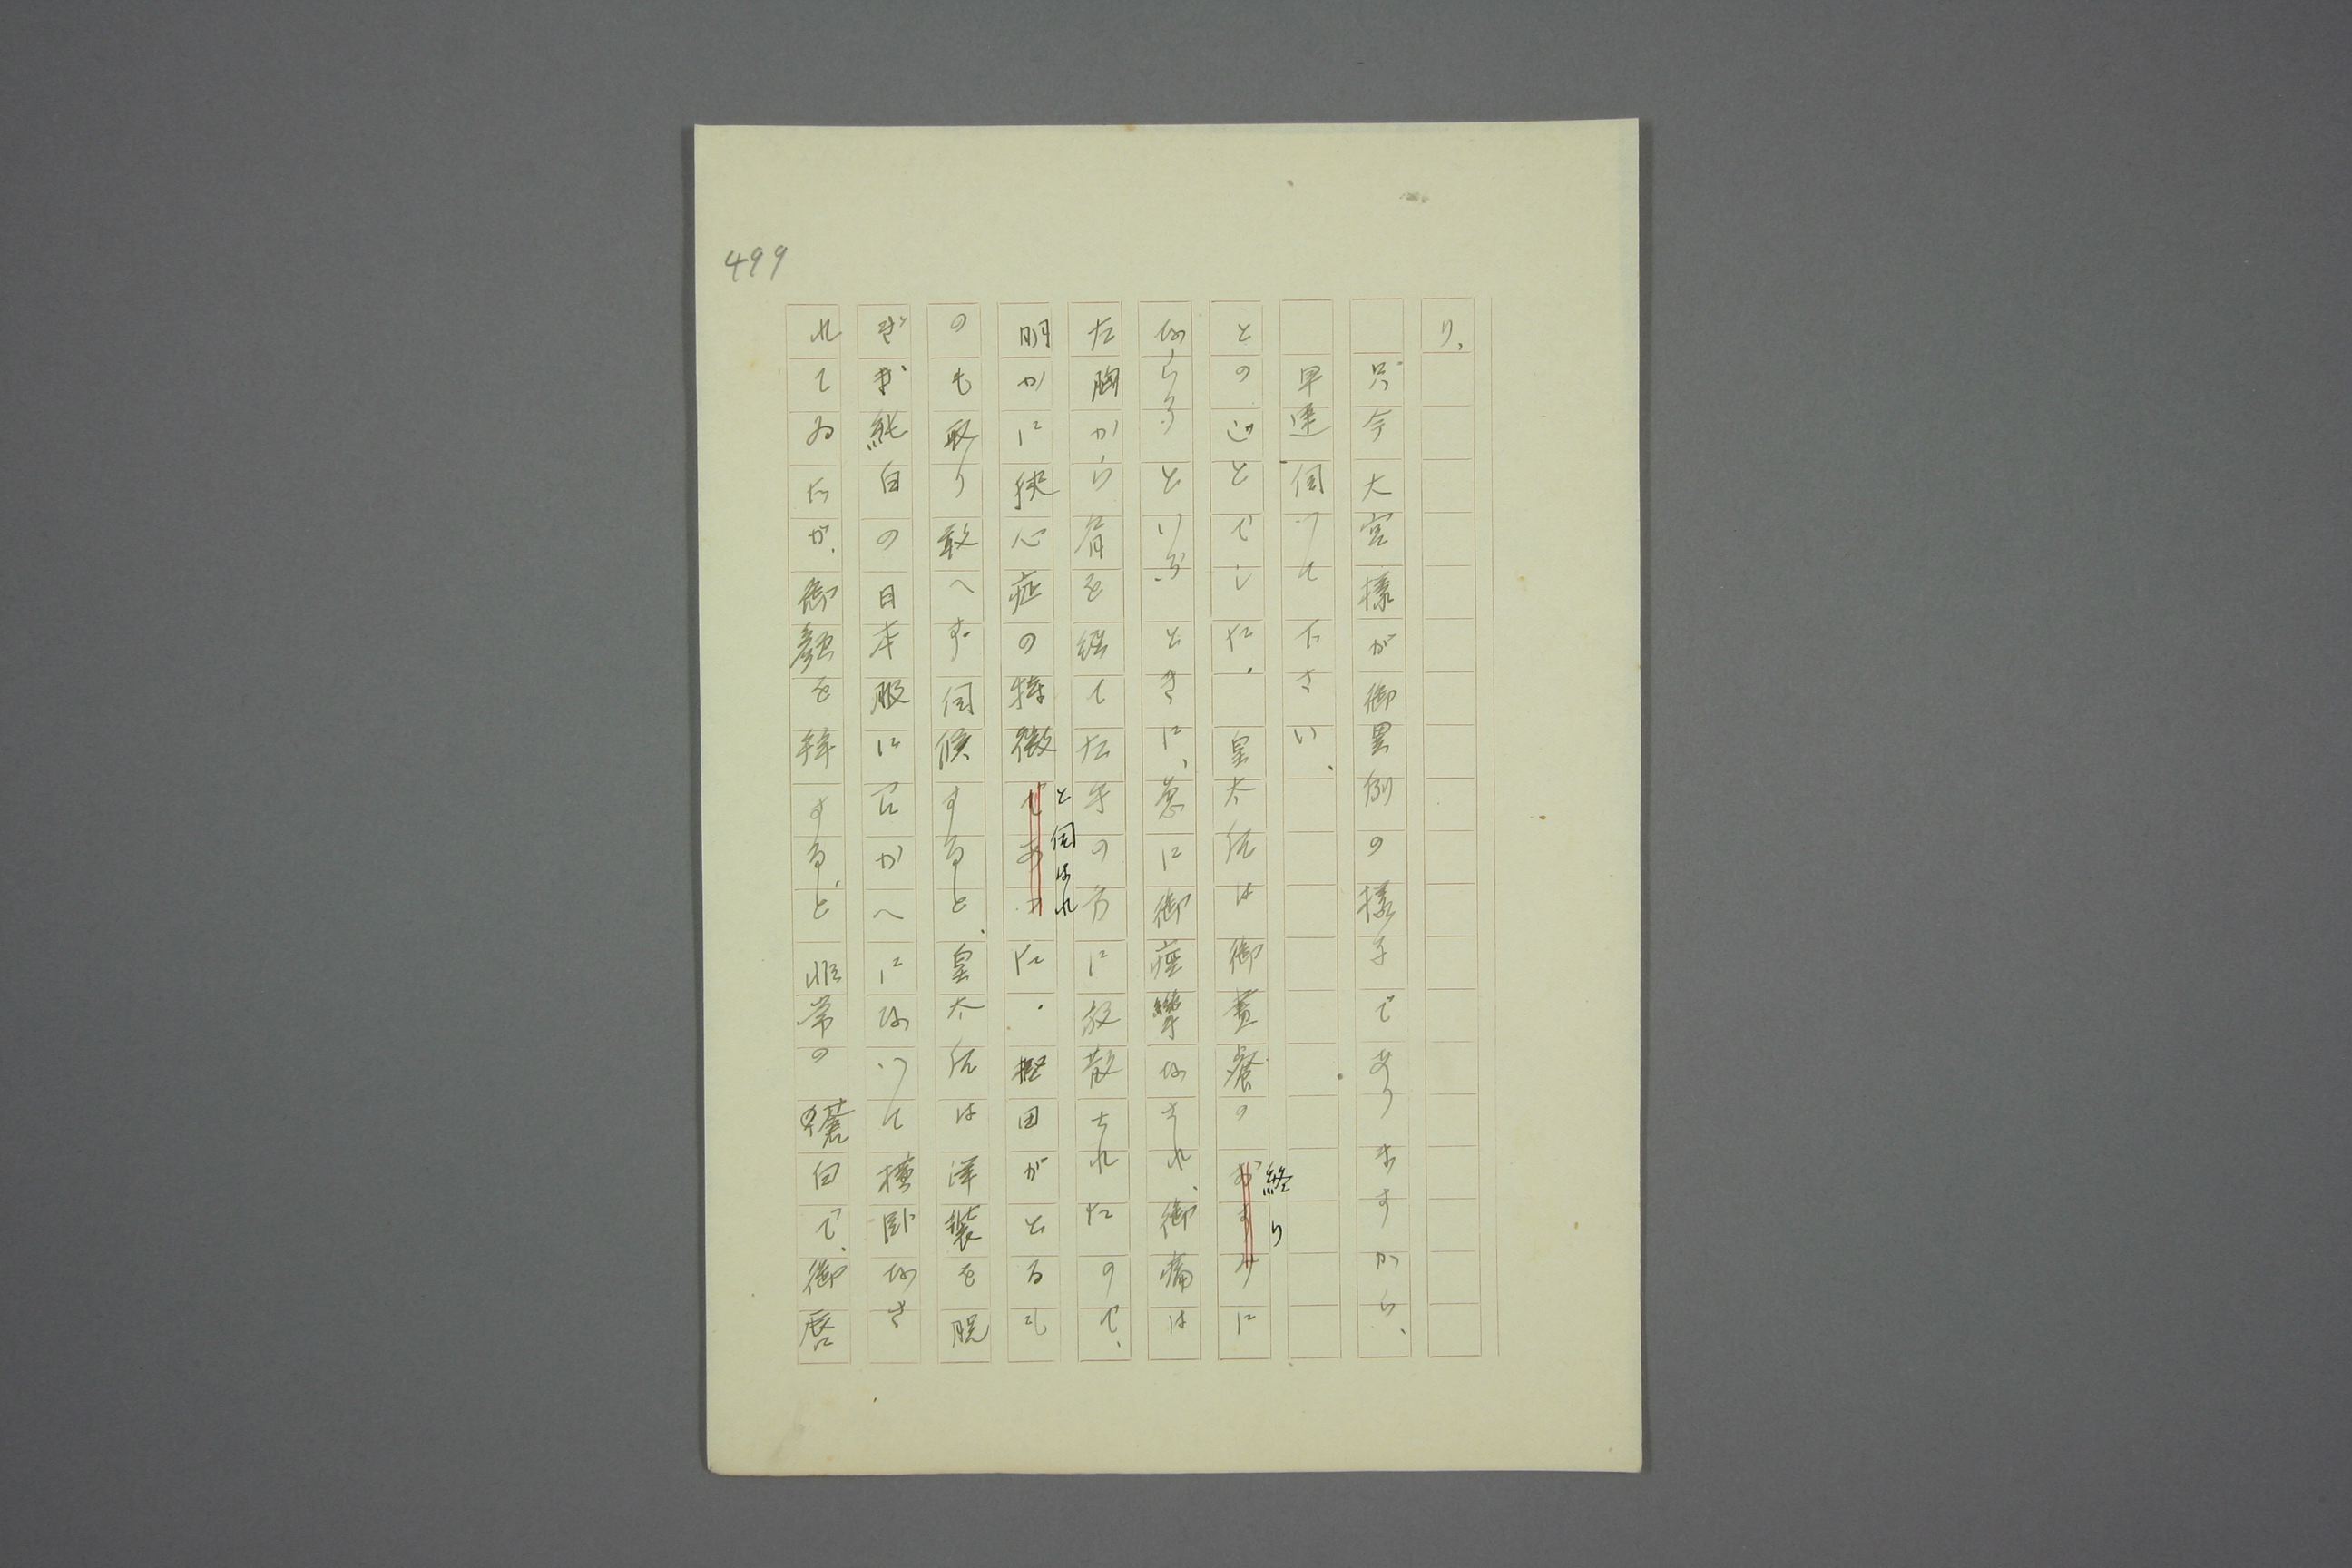 499
り、
只今大宮様が御異例の様子でありますから、
早速伺つて下さい、
とのことでした。皇太后は御晝餐のおすみに
終り
ならうといふときに、急に御痙攣なされ、御痛は
左胸から肩を經て左手の方に放散されたので、
明かに狹心症の特徴であつた。堅田がとるも
と伺はれ
のも取り敢へず伺候すると、皇太后は洋装を脱
ぎ純白の日本服に召かへになつて横臥なさ
れてゐたが、御顔を拜すると、非常の蒼白で、御唇